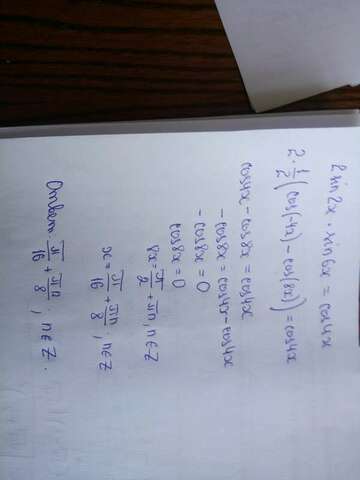 2 sin 2x · sin 6x = cos 4x
2 · 1/2 (cos(-4x) - cos(8x)) = cos 4x
cos 4x - cos 8x = cos 4x
- cos 8x = cos 4x - cos 4x
- cos 8x = 0
cos 8x = 0
8x = π/2 + πn, n ∈ Z
x = π/16 + πn/8 ; n ∈ Z
Ответ: π/16 + πn/8 ; n ∈ Z.